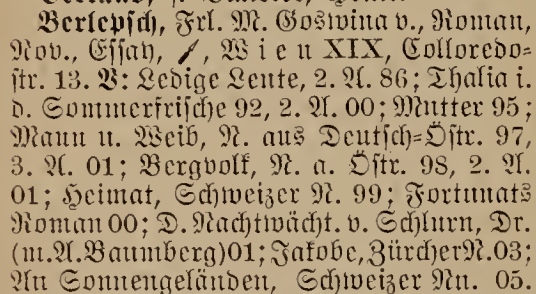 Berlepsch, Frl. M. Goswina v., Roman,
Nov., Essay, Wien XIX, Colloredo=
str. 13. V: Ledige Leute, 2. A. 86; Thalia i.
d. Sommerfrische 92, 2. A. 00; Mutter 95;
Mann u. Weib, N. aus Deutsch=Östr. 97,
3. A. 01; Bergvolk, N. a. Östr. 98, 2. A.
01; Heimat, Schweizer N. 99; Fortunats
Roman 00; D. Nachtwächt. v. Schlurn, Dr.
(m. A. Baumberg) 01; Jakobe, Zürcher N. 03;
An Sonnengeländen, Schweizer Nn. 05.